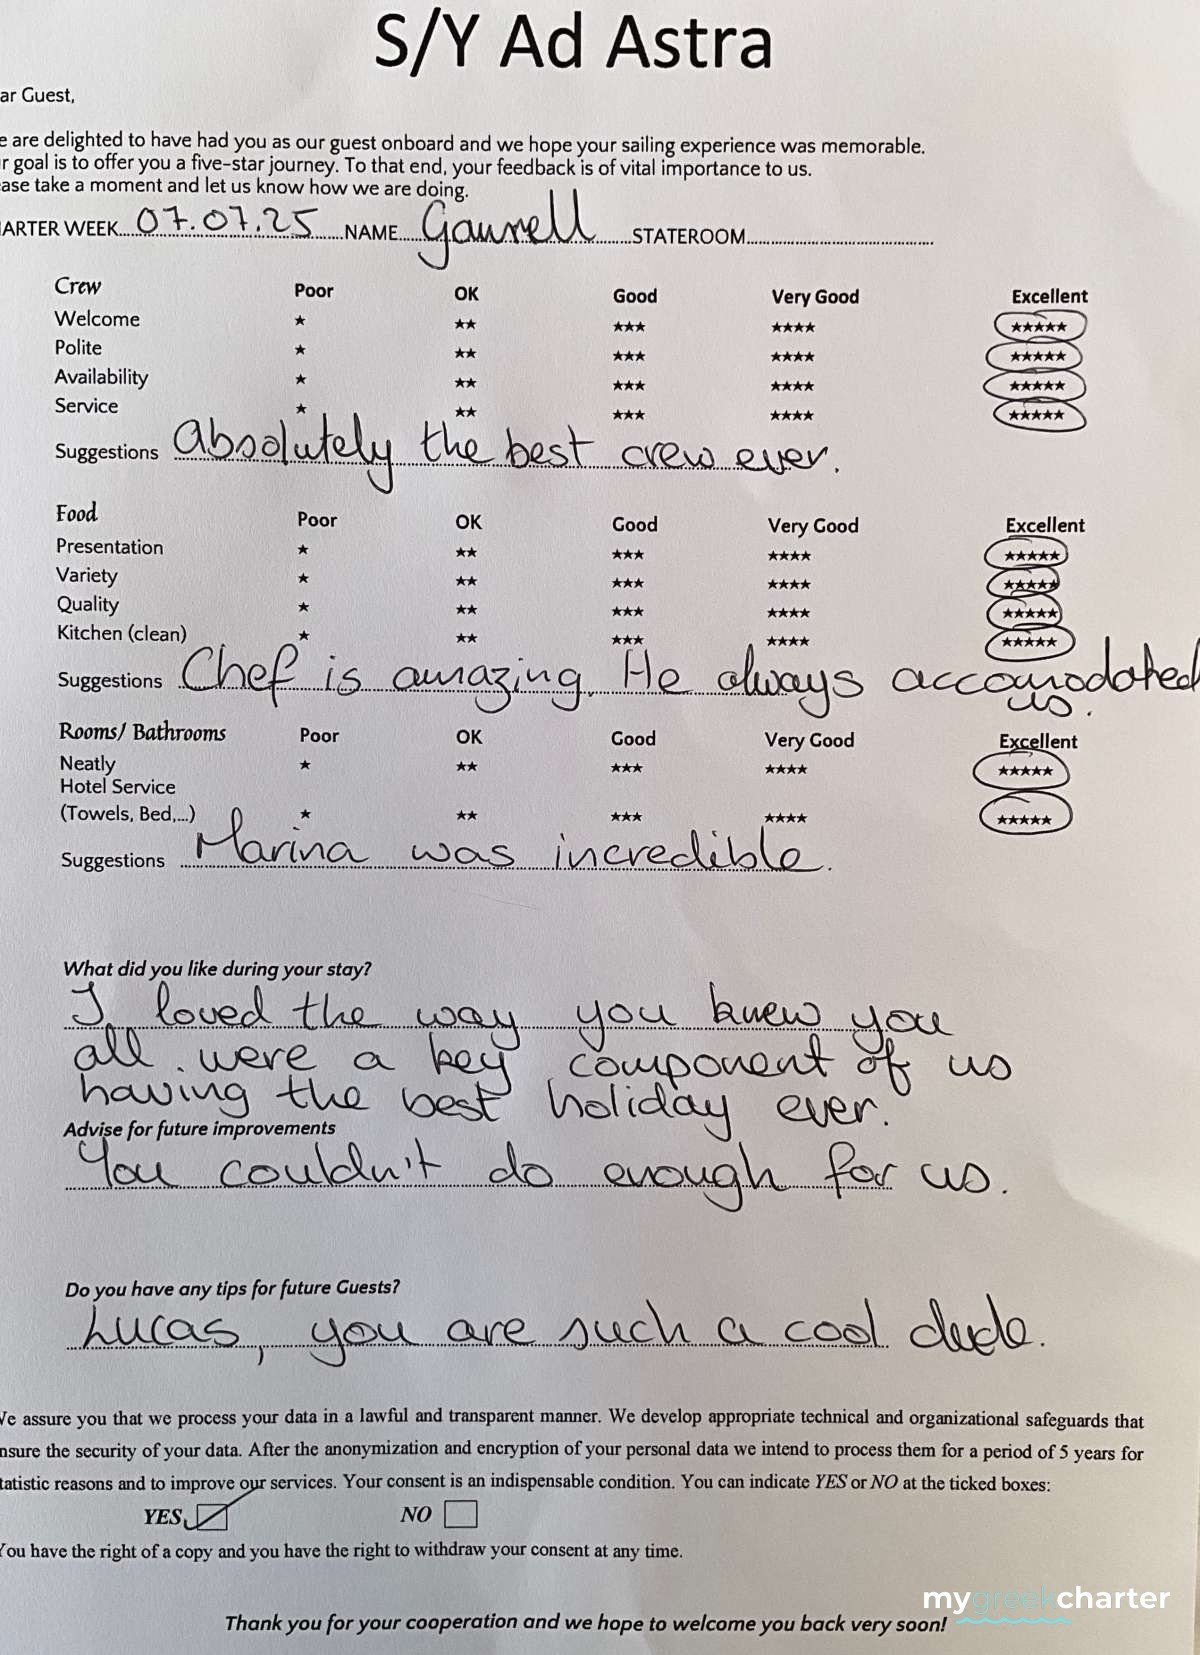 S/Y Ad Astra
ar Guest,
e are delighted to have had you as our guest onboard and we hope your sailing experience was memorable.
r goal is to offer you a five-star journey. To that end, your feedback is of vital importance to us.
ease take a moment and let us know how we are doing.
ARTER WEEK 07.07.25 NAME STATEROOM
Crew Poor OK Good Very Good Excellent
Welcome ★ ★★ ★★★ ★★★★ ★★★★★
Polite ★ ★★ ★★★ ★★★★ ★★★★★
Availability ★ ★★ ★★★ ★★★★ ★★★★★
Service ★ ★★ ★★★ ★★★★ ★★★★★
Suggestions Absolutely the best crew ever.
Food Poor OK Good Very Good Excellent
Presentation ★ ★★ ★★★ ★★★★ ★★★★★
Variety ★ ★★ ★★★ ★★★★ ★★★★★
Quality ★ ★★ ★★★ ★★★★ ★★★★★
Kitchen (clean) ★ ★★ ★★★ ★★★★ ★★★★★
Suggestions Chef is amazing. He always accomodated
us.
Rooms/ Bathrooms Poor OK Good Very Good Excellent
Neatly ★ ★★ ★★★ ★★★★ ★★★★★
Hotel Service
(Towels, Bed,...) ★ ★★ ★★★ ★★★★ ★★★★★
Suggestions Marina was incredible.
What did you like during your stay?
I loved the way you knew you
all were a key component of us
having the best holiday ever.
Advise for future improvements
You couldn't do enough for us.
Do you have any tips for future Guests?
Lucas, you are such a cool dude.
We assure you that we process your data in a lawful and transparent manner. We develop appropriate technical and organizational safeguards that
nsure the security of your data. After the anonymization and encryption of your personal data we intend to process them for a period of 5 years for
tatistic reasons and to improve our services. Your consent is an indispensable condition. You can indicate YES or NO at the ticked boxes:
YES NO
You have the right of a copy and you have the right to withdraw your consent at any time.
mygreekcharter
Thank you for your cooperation and we hope to welcome you back very soon!